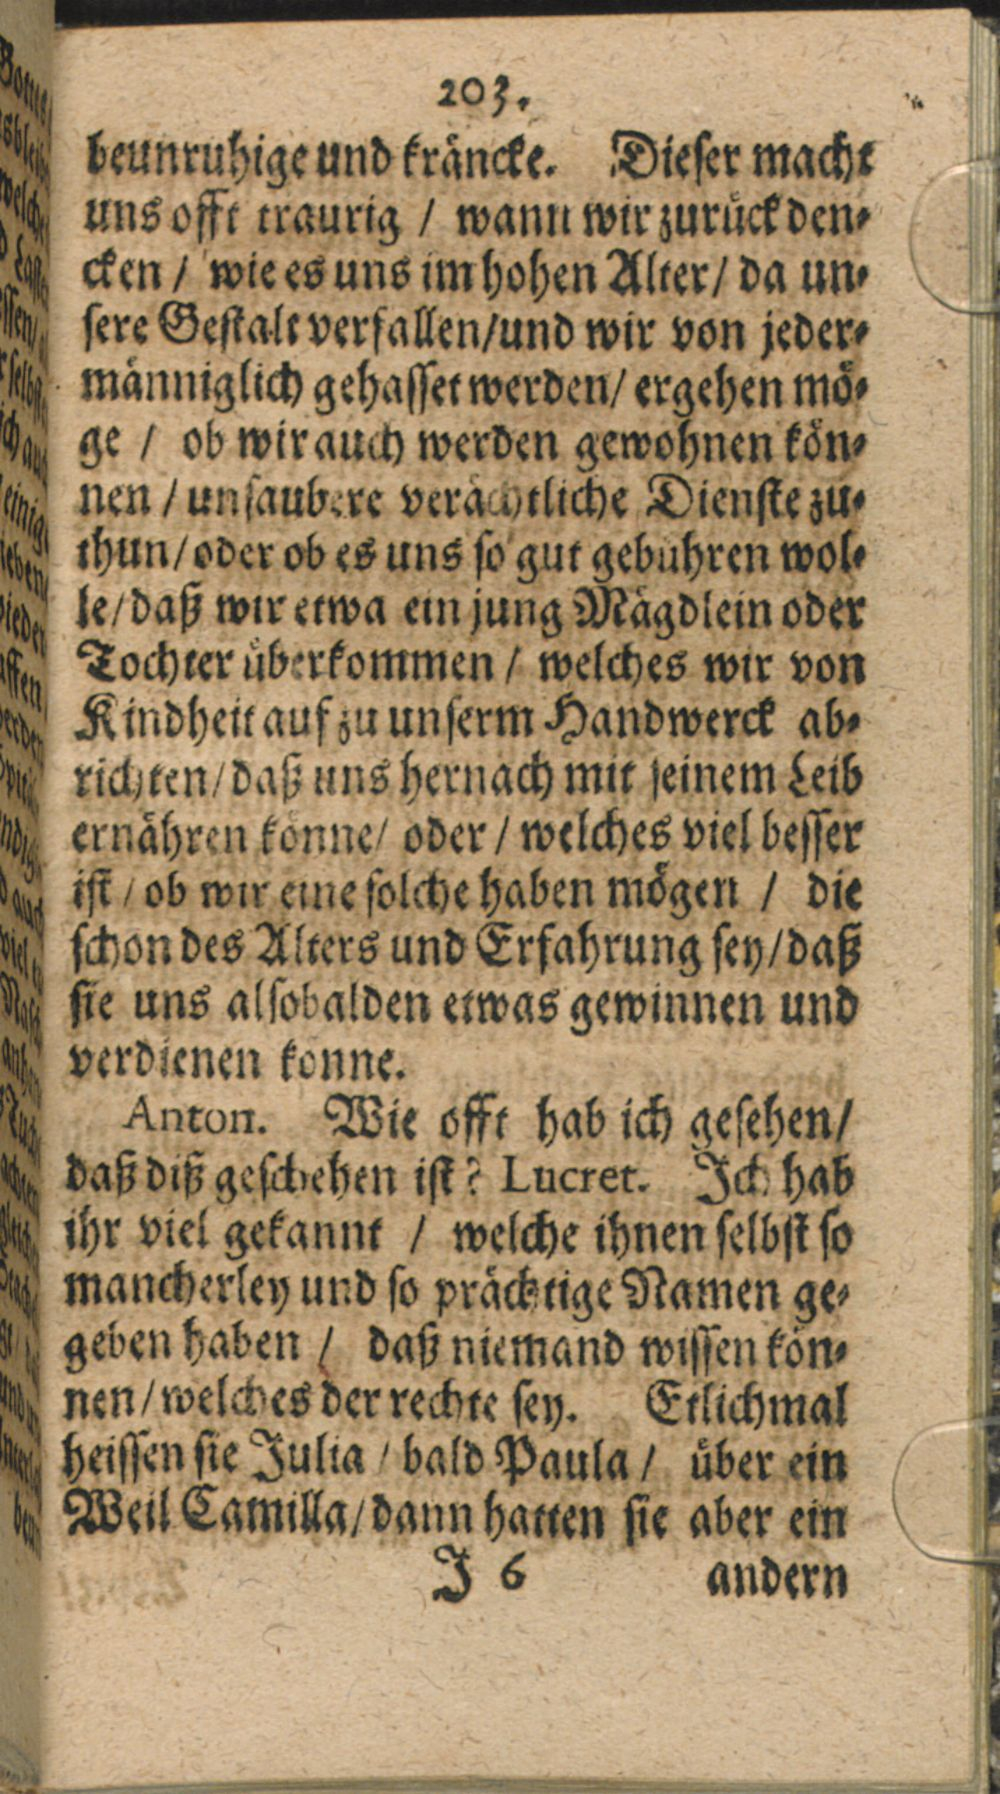 203.
beunruhige und kräncke. Dieser macht
uns offt traurig / wann wir zurück den-
cken / wie es uns im hohen Alter / da un-
sere Gestalt verfallen / und wir von jeder-
männiglich gehasset werden / ergehen mö-
ge / ob wir auch werden gewohnen kön-
nen / unsaubere verächtliche Dienste zu-
thun / oder ob es uns so gut gebühren wol-
le / daß wir etwa ein jung Mägdlein oder
Tochter überkommen / welches wir von
Kindheit auf zu unserm Handwerck ab-
richten / daß uns hernach mit seinem Leib
ernähren könne / oder / welches viel besser
ist / ob wir eine solche haben mögen / die
schon des Alters und Erfahrung sey / daß
sie uns alsobalden etwas gewinnen und
verdienen konne.
Anton. Wie offt hab ich gesehen /
daß diß geschehen ist? Lucret. Ich hab
ihr viel gekannt / welche ihnen selbst so
mancherley und so prächtige Namen ge-
geben haben / daß niemand wissen kön-
nen / welches der rechte sey. Etlichmal
heissen sie Julia / bald Paula / über ein
Weil Camilla / dann hatten sie aber ein
J 6 andern